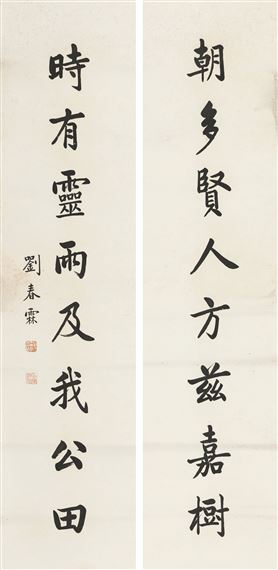 朝多賢人方兹嘉樹
時有靈雨及我公田
劉春霖